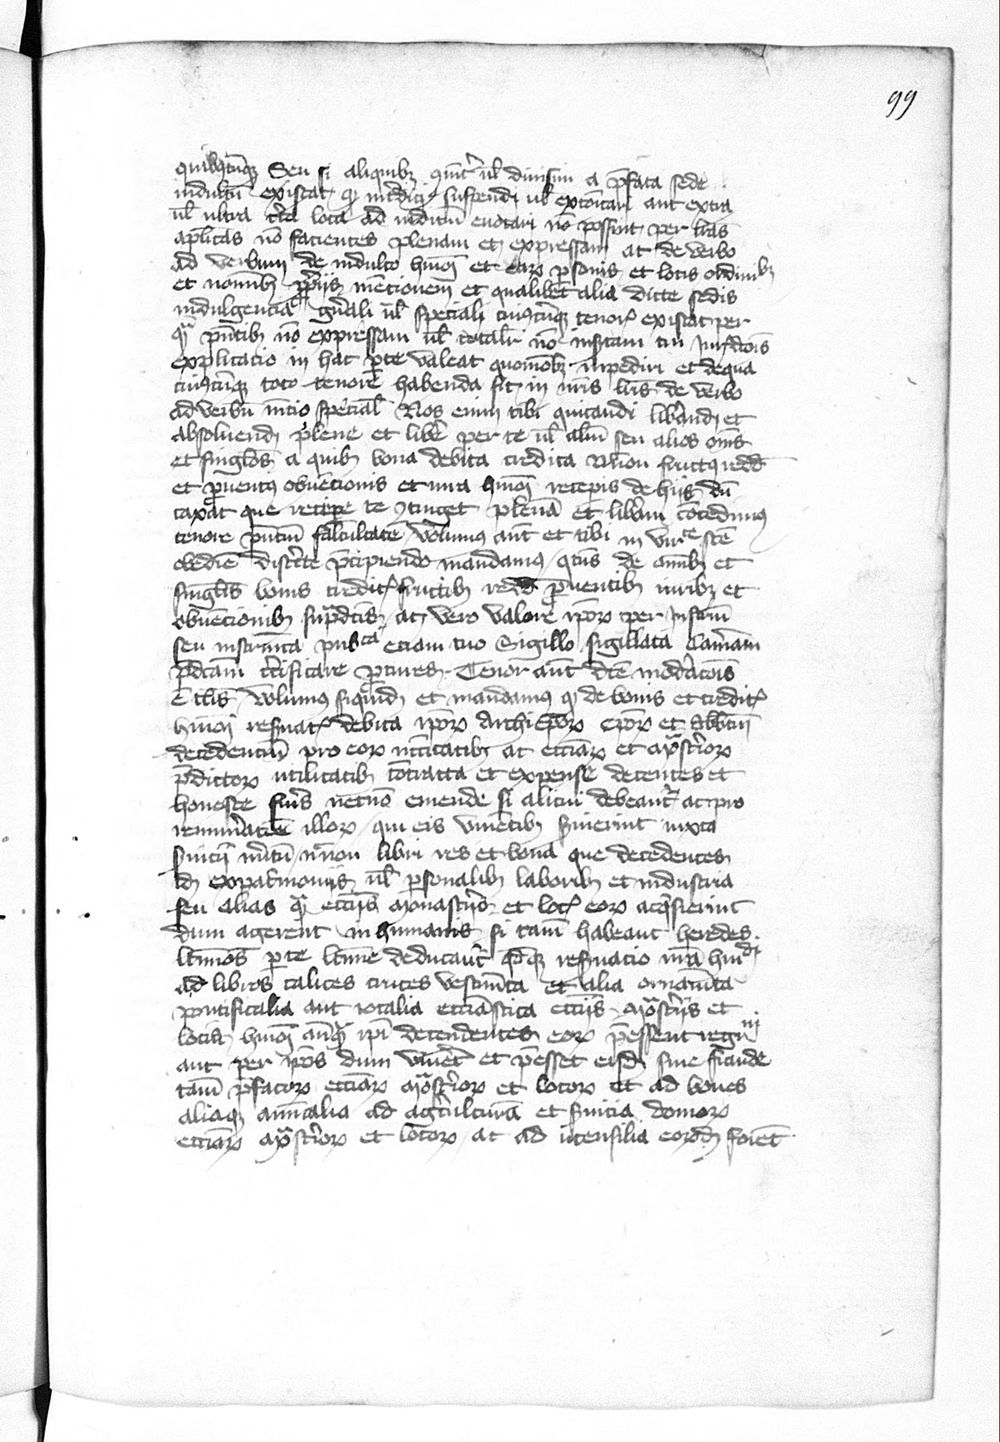 99
quibuscunque Seu si aliquibus coniunctim vel divisim a prefata sede
indultum existat quod interdici suspendi vel excommunicari aut extra
vel ultra certa loca ad iudicium evocari non possint per literas
aplicas non facientes plenam et expressam ac de verbo
ad verbum de indulto hmoi et eorum personis et locis ordinibus
et nominibus propriis mentionem et qualibet alia dicte sedis
indulgencia gnali vel speciali cuiuscunque tenoris existat per
quam pntibus non expressam vel totaliter non insertam tue iurisdictionis
explicatio in hac parte valeat quomodolibet impediri et de qua
cuiuscunque toto tenore habenda sit in nris literis de verbo
ad verbum mentio specialis Nos enim tibi quitandi liberandi et
absolvendi plene et libere per te vel alium seu alios omnes
et singulos a quibus bona debita credita fructus redd
et proventus obventionis et iura hmoi receperis de hiis dum
taxat que recipere te continget plenam et liberam concedimus
tenore pntium facultatem Volumus aut et tibi in virtute sce
obedie districte precipiendo mandamus quatenus de omnibus et
singulis bonis creditis fructibus redd proventibus iuribus et
obventionibus supradictis ac vero valore ipsorum per instrum
seu instrumenta publica etiam tuo Sigillo sigillata Cameram
predictam certificare procures Tenor aut dicte moderationis
e talis Volumus siquidem et mandamus quod de bonis et creditis
hmoi reservatis debita ipsorum Archieporum eporum et abbatum
decedentium pro eorum necessitatibus ac ecclesiarum et monasteriorum
predictorum utilitatibus contracta et expense decentes et
honeste funeris necnon emende si alicui debeantur ac pro
remuneratione illorum qui eis viventibus servierint iuxta
servicii meritum necnon libri res et bona que decedentes
idem ex patrimoniis vel personalibus laboribus et industria
seu alias quam ecclesiis Monasteriis et locis eorum acquisierint
dum agerent in humanis si tamen habeant heredes
legitimos parte legitime deducantur Quodque reservatio nra hmoi
ad libros calices cruces vestimenta et alia ornamenta
pontificalia aut iocalia ecclesiastica ecclesiis monasteriis et
locis hmoi antequam ipsi decedentes eorum preessent regimini
aut per ipsos dum viveret et preesset eisdem sine fraude
tamen prefatorum ecclesiarum monasteriorum et locorum et ad boves
aliaque animalia ad agriculturam et servitia domorum
ecclesiarum monasteriorum et locorum ac ad utensilia eorundem